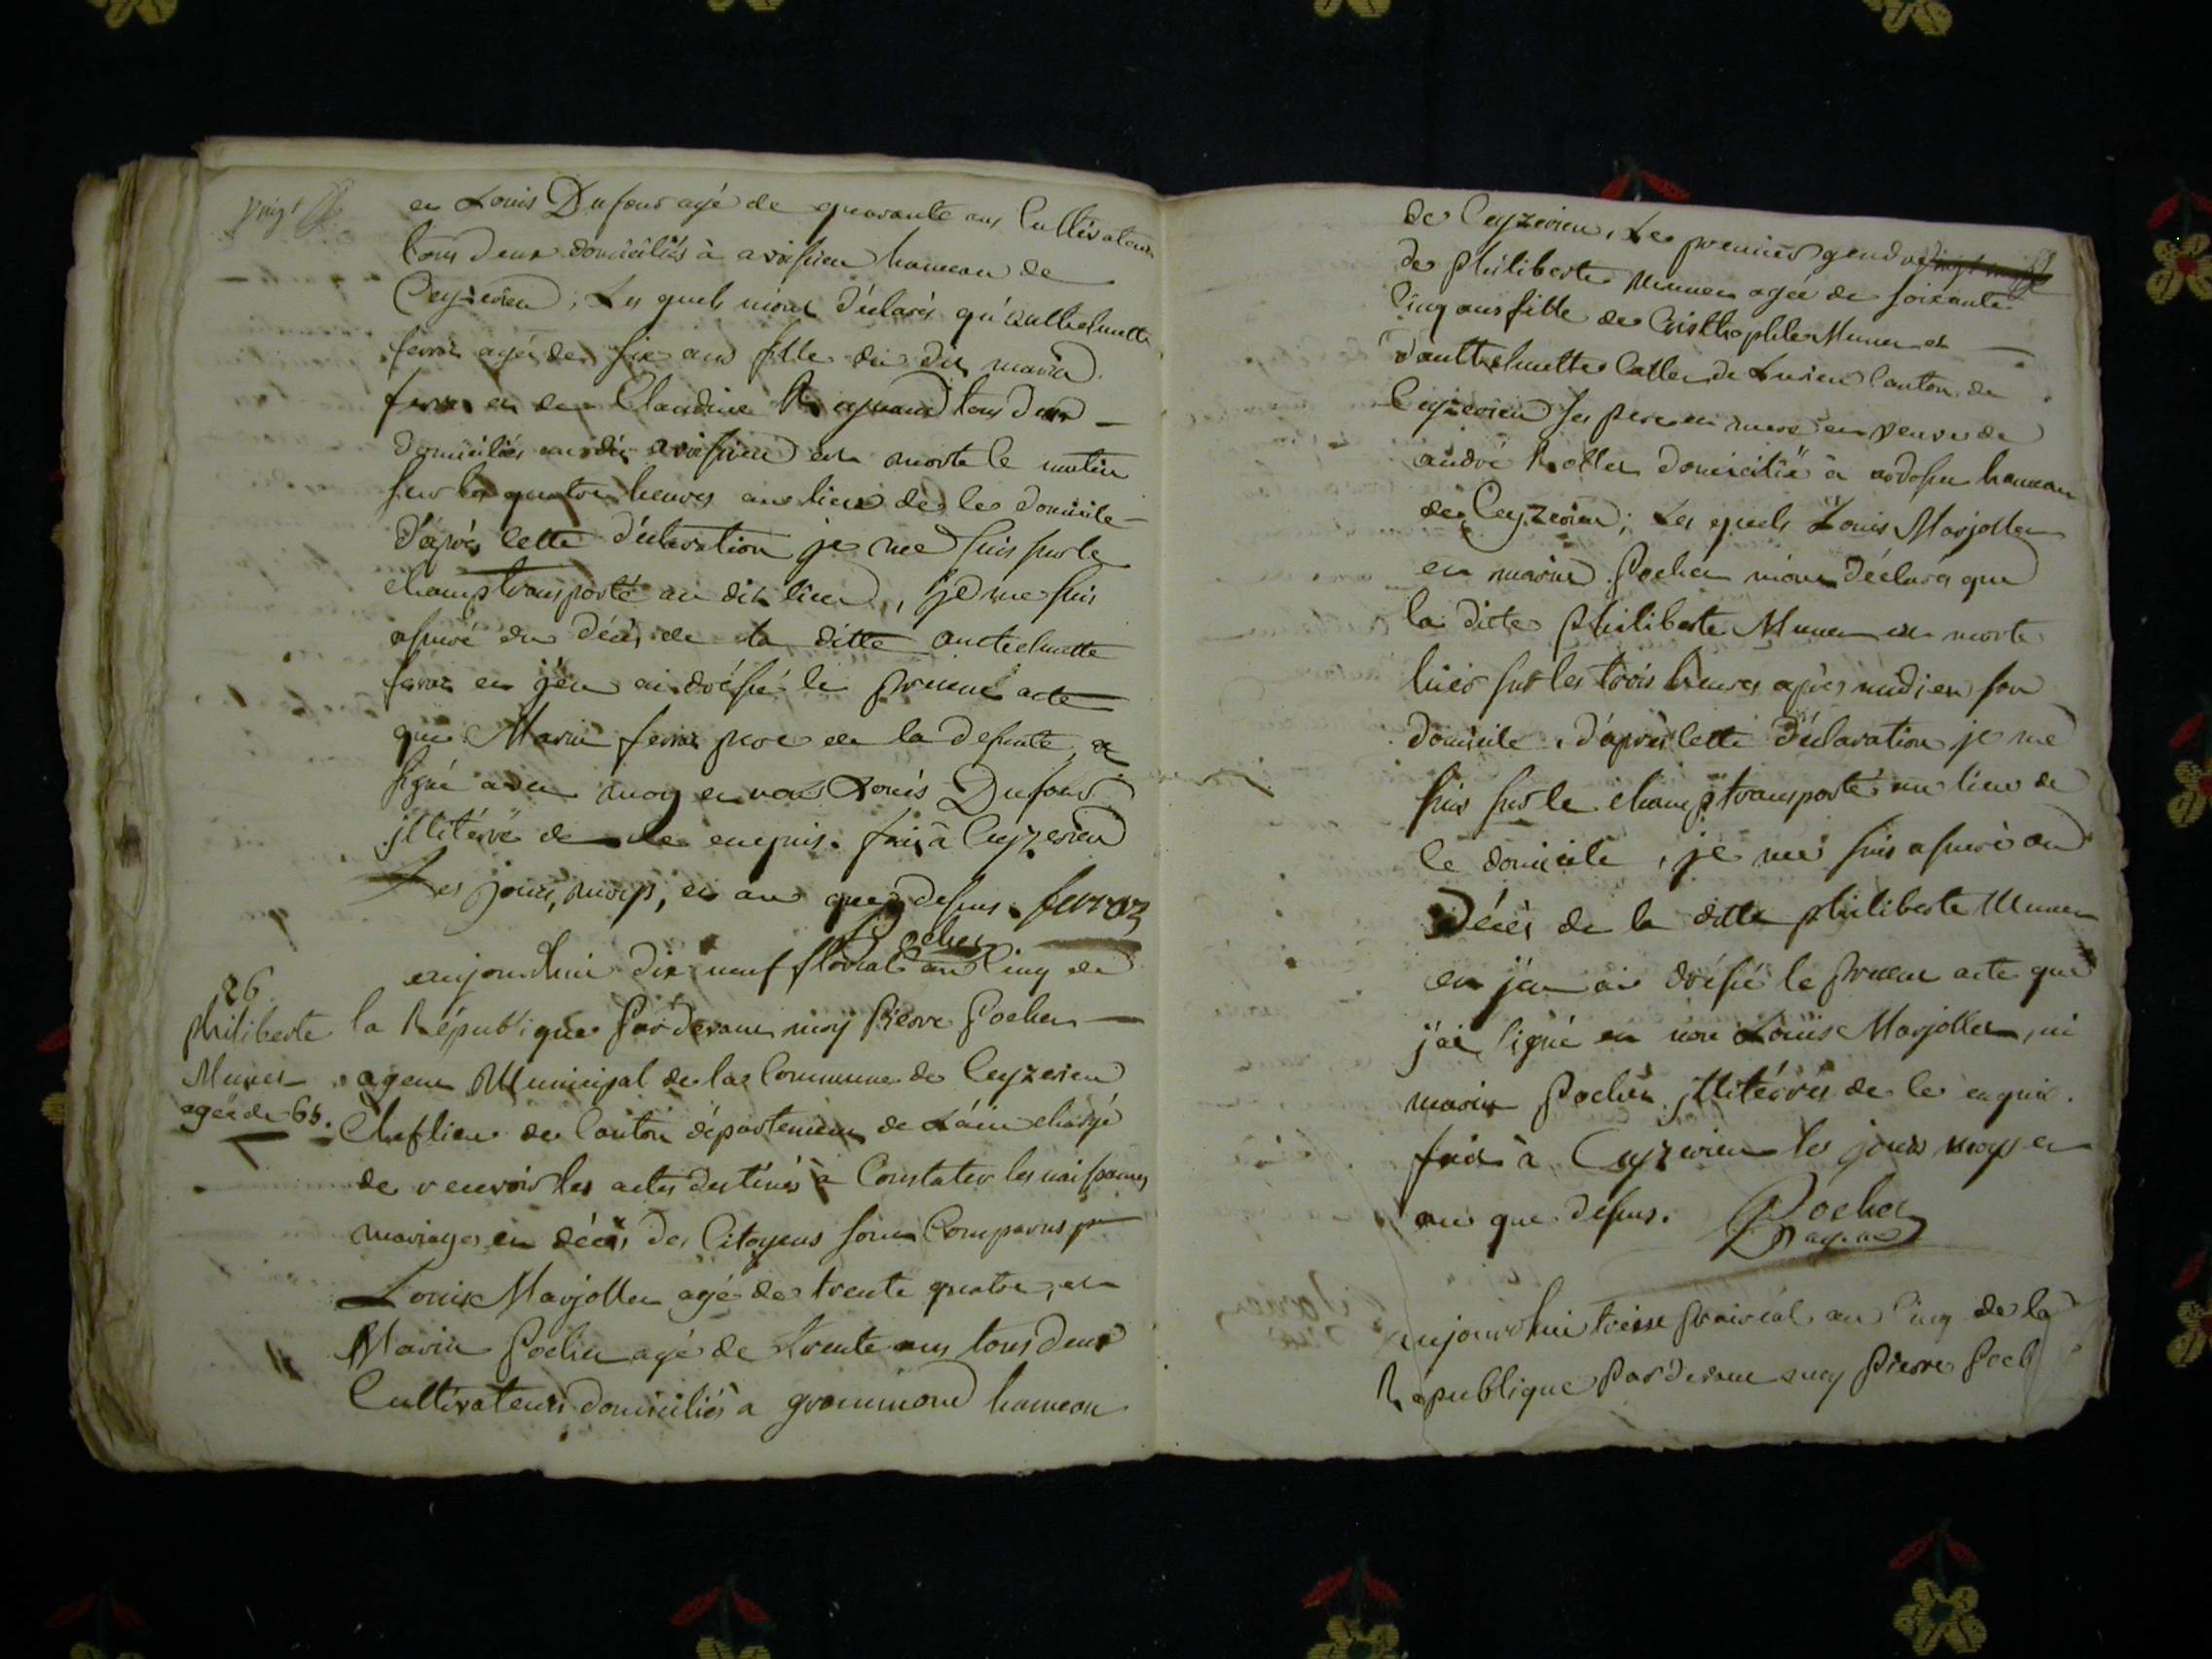 vingt
et Louis Dufour agé de quarante ans Cultivateurs
tous deux domiciliés à avrissieu hameau de
Ceyzerieu, Les quels m'ont déclarés qu'anthelmette
ferroz agée de six ans fille du dit marin
ferroz et de Claudine tous deux
domiciliés au dit avrissieu est morte le matin
sur les quatre heures au lieu de le domicile
d'après cette déclaration je me suis sur le
champ transporté au dit lieu, je me suis
assuré du décès de la ditte anthelmette
ferroz et j'en ai dréssé le present acte
que Marin ferroz pere de la defunte a
signé avec moy et non Louis Dufour
jllitéré de ce enquis. fait à Ceyzerieu
Les jour, moys, et an que dessus. ferroz
Pochet
26
philiberte
Munet
agée de 65.
aujourdhui dix neuf floréal an Cinq de
la République Pardevant moy Pierre Pochet
agent Municipal de la Commune de Ceyzerieu
Cheflieu de Canton département de L'ain chargé
de recevoir les actes destinés à Constater les naissances
mariages et décès des Citoyens sont Comparus
Louis Marjollet agé de trente quatre, et
Marin Pochet agé de trente ans tous deux
Cultivateurs domiciliés a grammont hameau
de Ceyzerieu, Le premier gendre
de philiberte Munet agée de soixante
Cinq ans fille de Cristhophle Munet et
d'anthelmette Callet de Lurieu Canton de
Ceyzerieu ses pere et mere et veuve de
andré Rollet domicilié à ardosset hameau
de Ceyzerieu; Les quels Louis Marjollet
et marin Pochet m'ont déclarés que
la ditte philiberte Munet est morte
hier sur les trois heures après midi en son
domicile, d'après cette déclaration je me
suis sur le champ transporté au lieu de
le domicile, je me suis assuré du
Décès de la ditte philiberte Munet
et j'en ai dréssé le present acte que
j'ai signé et non Louis Marjollet, ni
marin Pochet jllitérés de ce enquis.
fait à Ceyzerieu les jour moys et
an que dessus. Pochet
aujourdhui treise prairéal an Cinq de la
République Pardevant moy Pierre Poch